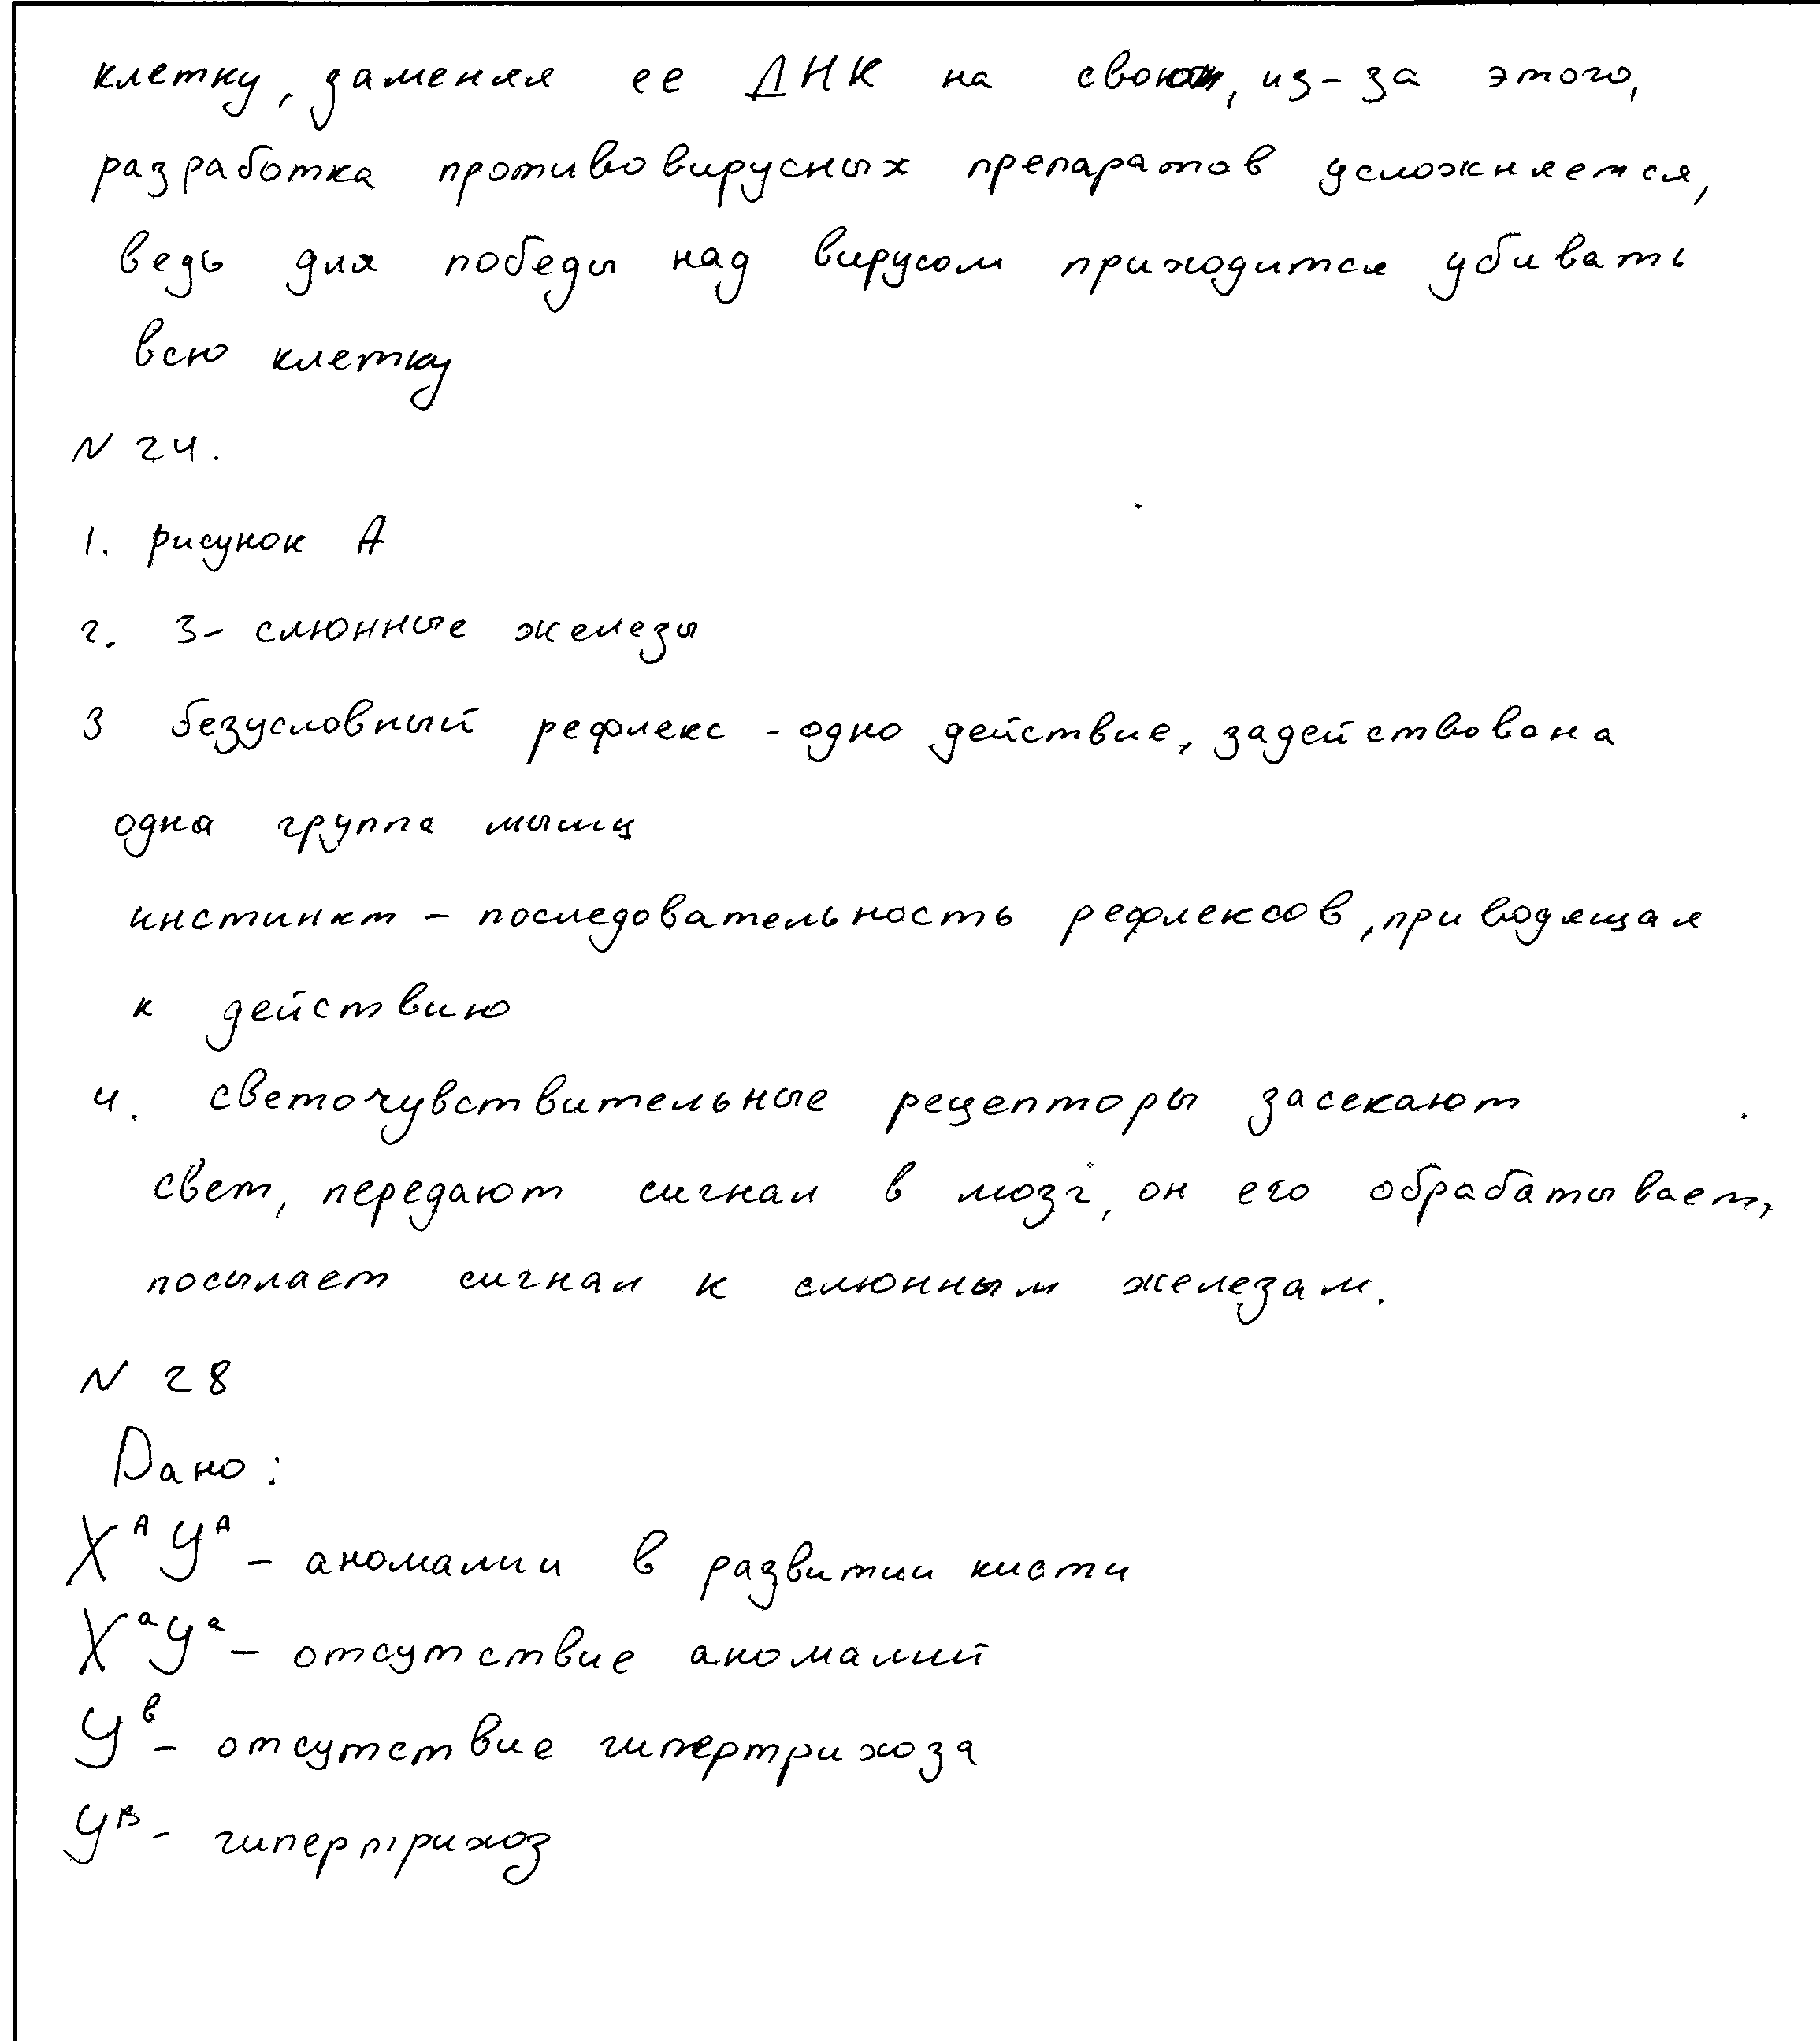 клетку, заменяя ее ДНК на свою, из-за этого,
разработка противовирусных препаратов усложняется,
ведь для победы над вирусом приходится убивать
всю клетку
N 24.
1. рисунок А
2. 3- слюнные железы
3 безусловный рефлекс - одно действие, задействована
одна группа мышц
инстинкт - последовательность рефлексов, приводящая
к действию
4. светочувствительные рецепторы засекают
свет, передают сигнал в мозг, он его обрабатывает,
посылает сигнал к слюнным железам.
N 28
Дано:
X^A Y^A - аномалии в развитии кисти
X^a Y^a - отсутствие аномалий
Y^b - отсутствие гипертрихоза
Y^B - гипертрихоз